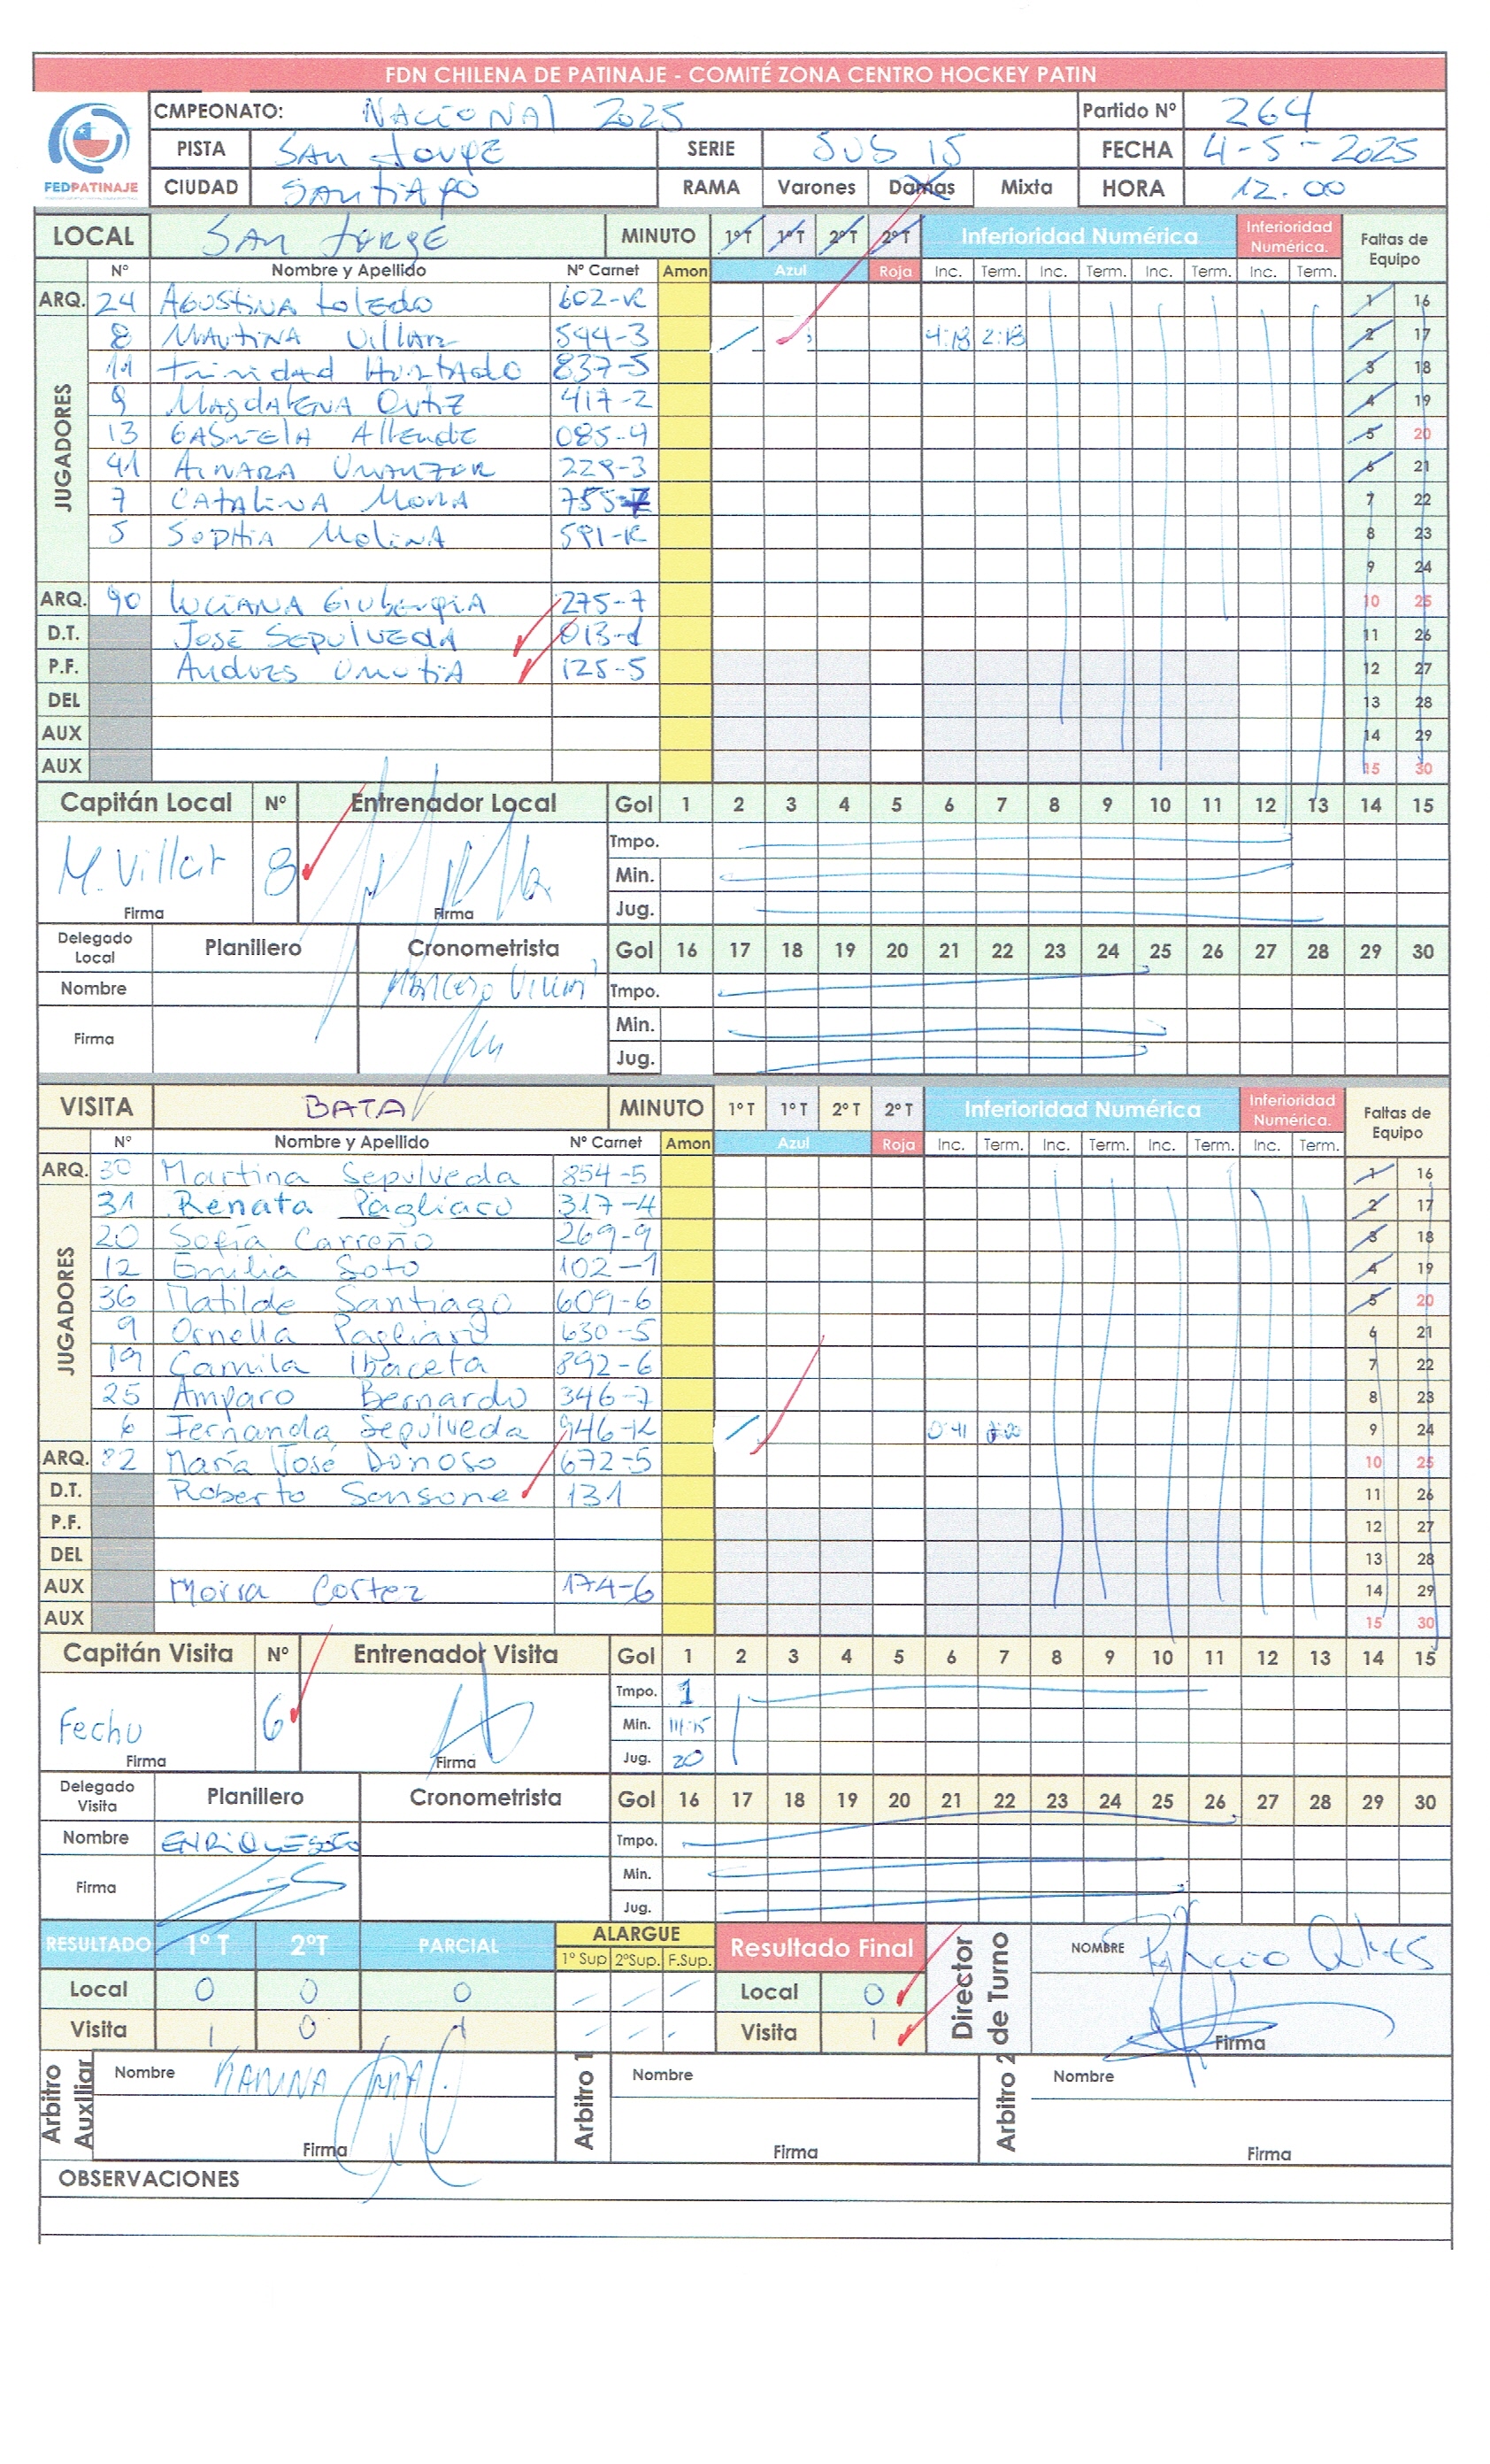 FDN CHILENA DE PATINAJE - COMITÉ ZONA CENTRO HOCKEY PATIN
FEDPATINAJE
CMPEONATO: NACIONAL 2025 Partido Nº 264
PISTA SAN JORGE SERIE SUB 15 FECHA 4-5-2025
CIUDAD SANTIAGO RAMA Varones Damas Mixta HORA 12.00
LOCAL SAN JORGE MINUTO 1º T 1º T 2º T 2º T Inferioridad Numérica Inferioridad Numérica. Faltas de Equipo
Nº Nombre y Apellido Nº Carnet Amon Azul Roja Inc. Term. Inc. Term. Inc. Term. Inc. Term.
ARQ. 24 AGUSTINA toLEDO 602-K 1 16
JUGADORES
8 MARTINA Villar 544-3 4:18 2:18 2 17
11 trinidad HURTADO 837-5 3 18
9 MAGDALENA ORTIZ 417-2 4 19
13 GABRIELA AllENDE 085-4 5 20
41 AINARA UMANZOR 229-3 6 21
7 CATALINA MORA 755- 7 22
5 SOPHIA MOLINA 591-K 8 23
9 24
ARQ. 90 LUCIANA 275-7 10 25
D.T. JOSE SEPULVEDA 013-1 11 26
P.F. Andres URRUTIA 125-5 12 27
DEL 13 28
AUX 14 29
AUX 15 30
Capitán Local Nº Entrenador Local Gol 1 2 3 4 5 6 7 8 9 10 11 12 13 14 15
M. Villar 8 Tmpo.
Min.
Firma Firma Jug.
Delegado Local Planillero Cronometrista Gol 16 17 18 19 20 21 22 23 24 25 26 27 28 29 30
Nombre MARCELO Tmpo.
Firma Min.
Jug.
VISITA BATA MINUTO 1º T 1º T 2º T 2º T Inferioridad Numérica Inferioridad Numérica. Faltas de Equipo
Nº Nombre y Apellido Nº Carnet Amon Azul Roja Inc. Term. Inc. Term. Inc. Term. Inc. Term.
ARQ. 30 Martina Sepulveda 854-5 1 16
JUGADORES
31 Renata Pagliaro 317-4 2 17
20 Sofía Carreño 269-9 3 18
12 Emilia Soto 102-1 4 19
36 Matilde Santiago 609-6 5 20
9 Ornella Pagliaro 630-5 6 21
19 Camila Ibaceta 892-6 7 22
25 Amparo Bernardo 346-7 8 23
6 Fernanda Sepúlveda 946-K 0:41 9 24
ARQ. 82 María José Donoso 672-5 10 25
D.T. Roberto Sansone 131 11 26
P.F. 12 27
DEL 13 28
AUX Moira Cortez 174-6 14 29
AUX 15 30
Capitán Visita Nº Entrenador Visita Gol 1 2 3 4 5 6 7 8 9 10 11 12 13 14 15
Fechu 6 Tmpo. 1
Min. 14:15
Firma Firma Jug. 20
Delegado Visita Planillero Cronometrista Gol 16 17 18 19 20 21 22 23 24 25 26 27 28 29 30
Nombre ENRIQUE SOTO Tmpo.
Firma Min.
Jug.
RESULTADO 1º T 2ºT PARCIAL ALARGUE Resultado Final Director de Turno NOMBRE
1º Sup 2ºSup. F.Sup.
Local 0 0 0 Local 0
Visita 1 0 1 Visita 1 Firma
Arbitro Auxiliar Nombre KARINA Arbitro 1 Nombre Arbitro 2 Nombre
Firma Firma Firma
OBSERVACIONES